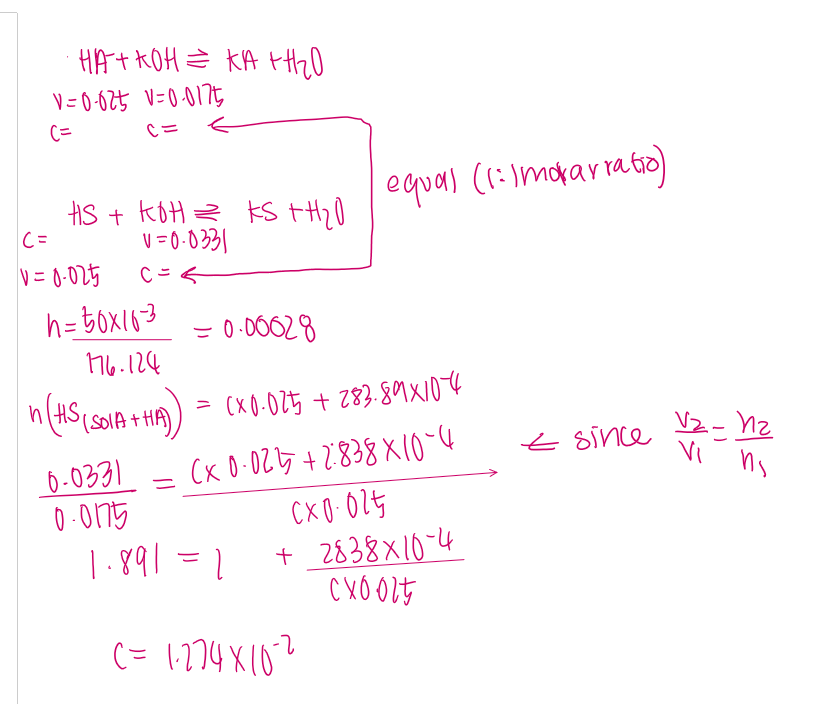 HA + KOH ⇌ KA + H₂O
V=0.025 V=0.0175
C= C= ←
equal (1:1 molar ratio)
HS + KOH ⇌ KS + H₂O
C= V=0.0331
V=0.025 C= ←
n=50×10⁻³/176.124 = 0.00028
n(HS(SolA+HA)) = C×0.025 + 283.89×10⁻⁴
0.0331/0.0175 = (C×0.025 + 2.838×10⁻⁴)/(C×0.025) ← since V₂/V₁ = n₂/n₁
1.891 = 1 + 2.838×10⁻⁴/(C×0.025)
C= 1.274×10⁻²